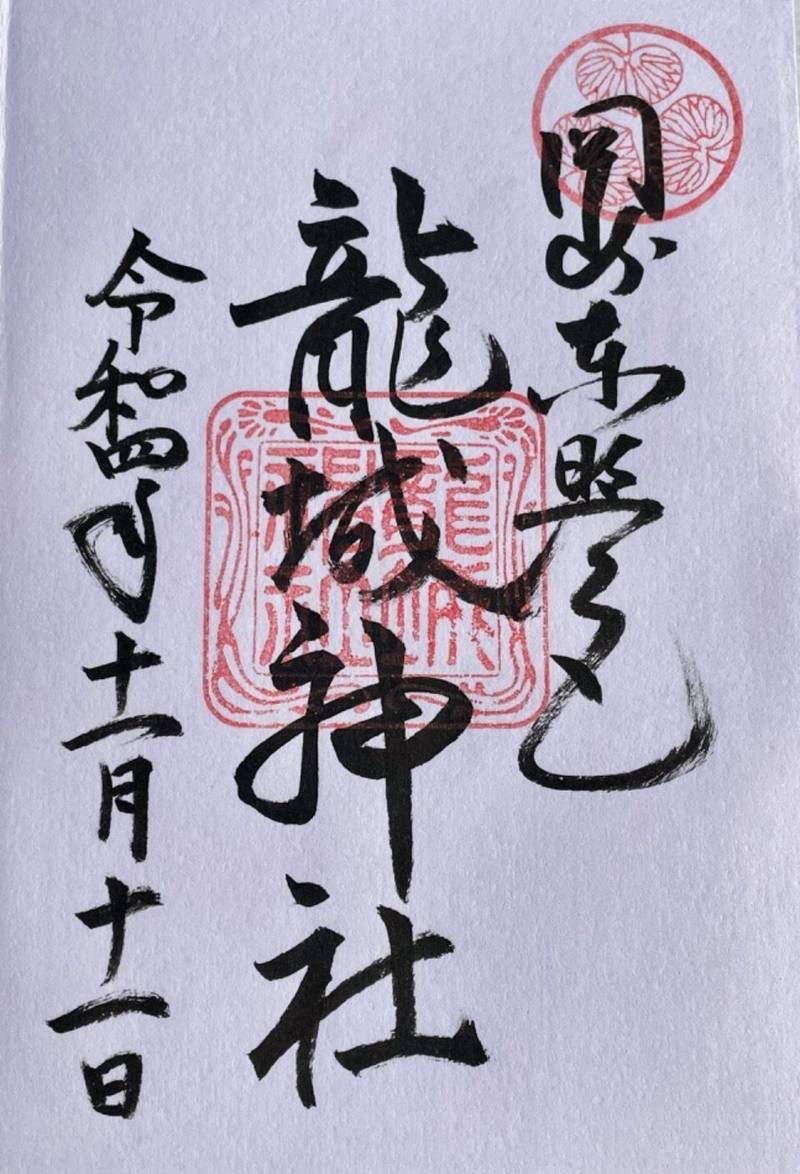 岡崎東照宮
龍城神社
令和四年十一月十一日